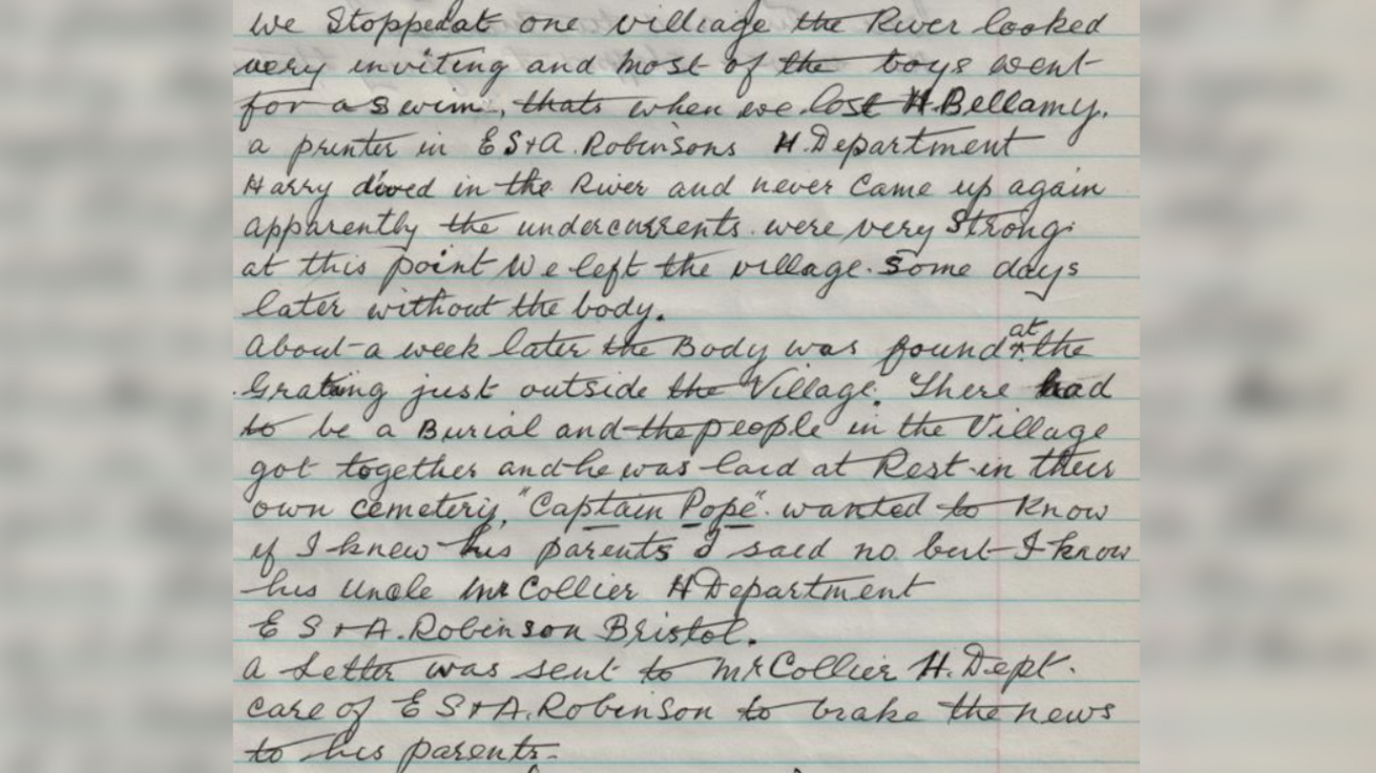 we Stopped at one villiage the River looked
very inviting and most of the boys went
for a swim, thats when we lost H. Bellamy.
a printer in E S & A. Robinsons H. Department
Harry dived in the River and never Came up again
apparently the undercurrents were very Strong.
at this point We left the village. Some days
later without the body.
About a week later the Body was found at the
Grating just outside the Village. There had
to be a Burial and the people in the Village
got together and he was laid at Rest in their
own cemetery, "Captain Pope". wanted to Know
if I knew his parents I said no but I know
his Uncle Mr Collier H Department
E S & A. Robinson Bristol.
a Letter was sent to Mr Collier H. Dept.
care of E S & A. Robinson to brake the news
to his parents.